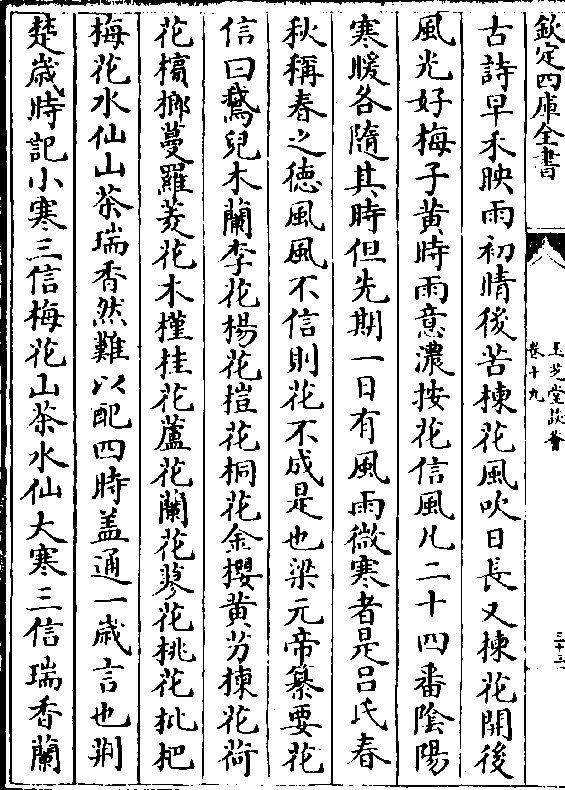 欽定四庫全書
玉芝堂談薈
卷十九
三十三
古詩早禾映雨初晴後苦楝花風吹日長又楝花開後
風光好梅子黄時雨意濃按花信風凡二十四番陰陽
寒暖各隨其時但先期一日有風雨微寒者是吕氏春
秋稱春之徳風風不信則花不成是也梁元帝纂要花
信曰鵞兒木蘭李花楊花榿花桐花金攖黄芳楝花荷
花檳榔蔓羅菱花木槿桂花蘆花蘭花蓼花桃花枇杷
梅花水仙山茶瑞香然難以配四時盖通一歳言也荆
楚歳時記小寒三信梅花山茶水仙大寒三信瑞香蘭